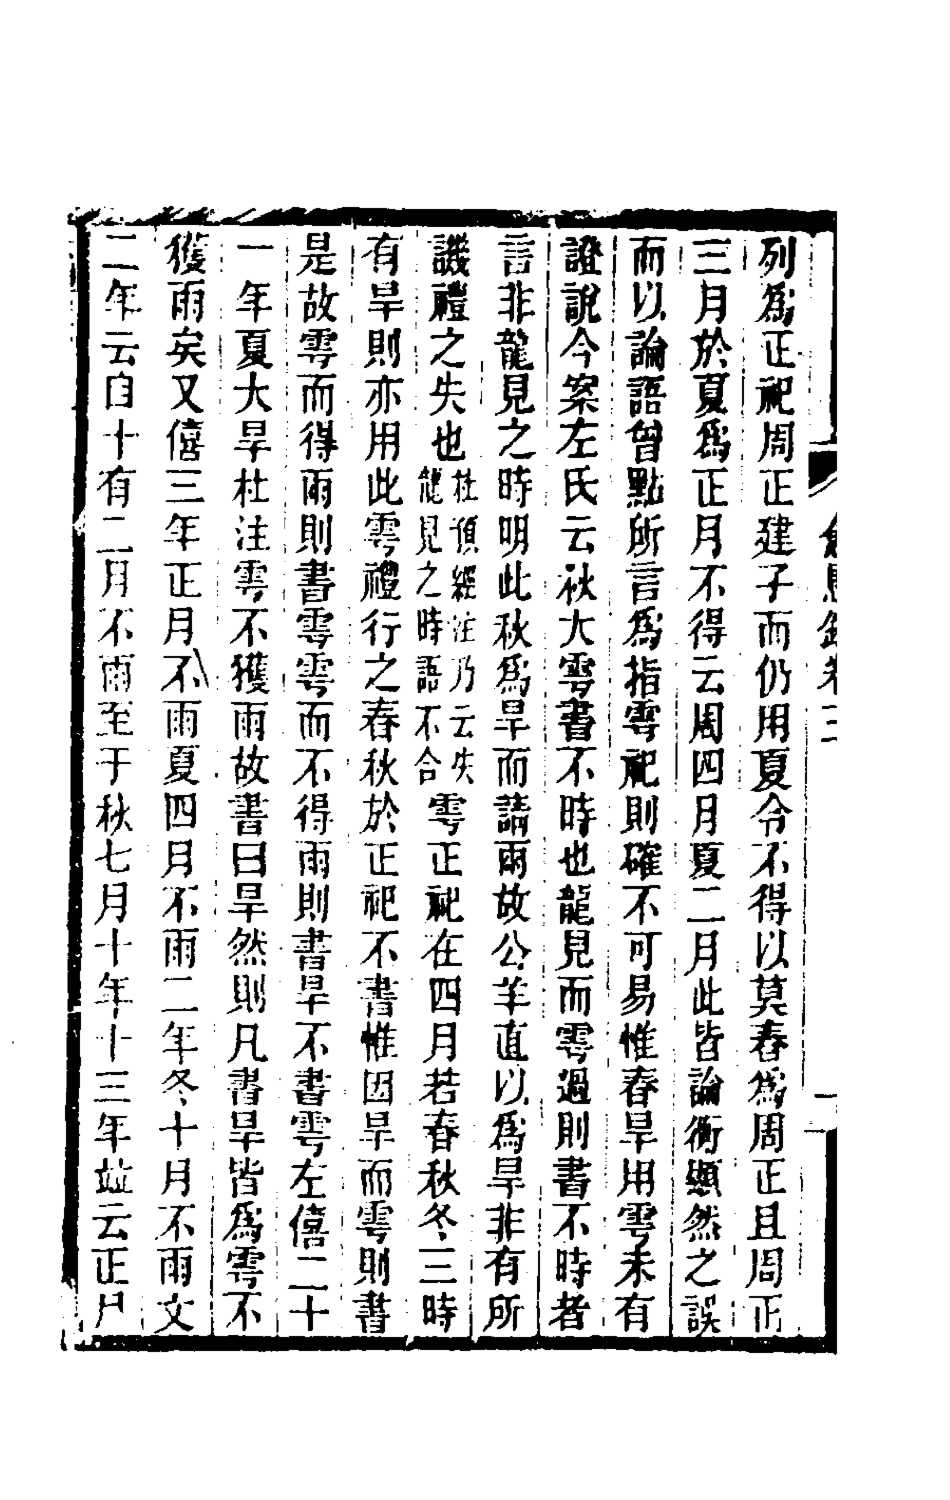 列爲正祀周正建子而仍用夏令不得以莫春爲周正且周正
三月於夏爲正月不得云周四月夏二月此皆論衡顯然之誤
而以論語曾點所言爲指雩祀則確不可易惟春旱用雩未有
證說今案左氏云秋大雩書不時也龍見而雩過則書不時者
言非龍見之時明此秋爲旱而請雨故公羊直以爲旱非有所
譏禮之失也杜預經注乃云失龍見之時語不合雩正祀在四月若春秋冬三時
有旱則亦用此雩禮行之春秋於正祀不書惟因旱而雩則書
是故雩而得雨則書雩雩而不得雨則書旱不書雩左僖二十
一年夏大旱杜注雩不獲雨故書曰旱然則凡書旱皆爲雩不
獲雨矣又僖三年正月不雨夏四月不雨二年冬十月不雨文
二年云自十有二月不雨至于秋七月十年十三年竝云正月
錄卷三